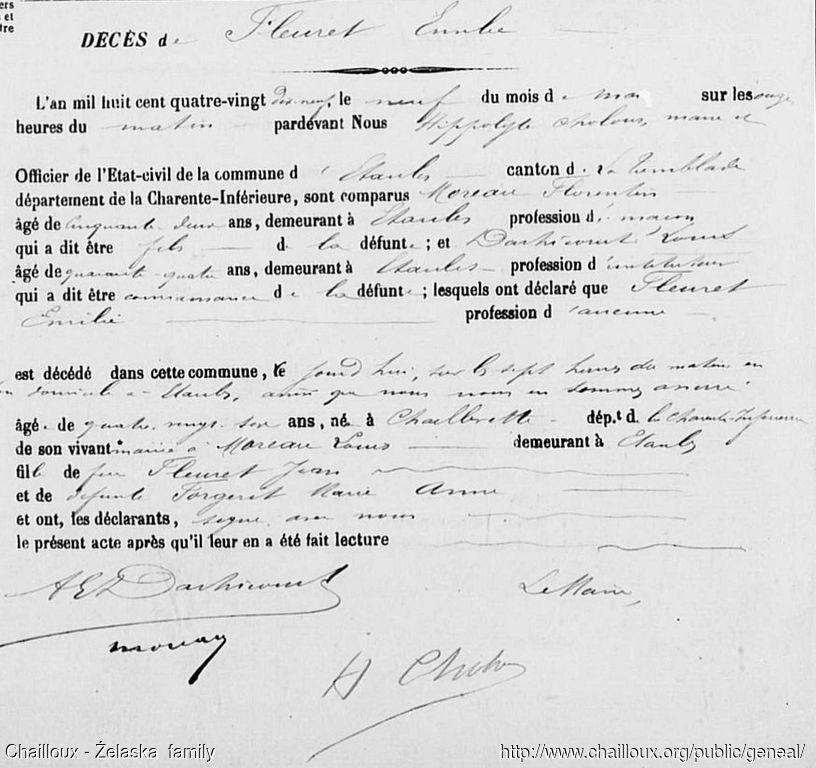 DÉCÈS de Fleuret Emilie
L'an mil huit cent quatre-vingt dix neuf, le neuf du mois de Mai sur les onze
heures du matin pardevant Nous Hippolyte maire et
Officier de l'Etat-civil de la commune d'Etaules canton de La Tremblade
département de la Charente-Inférieure, sont comparus Moreau Florentin
âgé de cinquante deux ans, demeurant à Etaules profession de maçon
qui a dit être fils de la défunte ; et Louis
âgé de quarante quatre ans, demeurant à Etaules profession d'instituteur
qui a dit être connaissance de la défunte ; lesquels ont déclaré que Fleuret
Emilie profession d'aucune
est décédé dans cette commune, ce jourd'hui, sur les sept heures du matin en
son domicile à Etaules, ainsi que nous nous en sommes assuré
âgée de quatre vingt ans, née à Chaillevette dép.t d. la Charente-Inférieure
de son vivant mariée à Moreau Louis demeurant à Etaules
fille de feu Fleuret Jean
et de défunte Forgeret Marie Anne
et ont, les déclarants, signé avec nous
le présent acte après qu'il leur en a été fait lecture
Le Maire,
Moreau
Chailloux - Żelaska family http://www.chailloux.org/public/geneal/